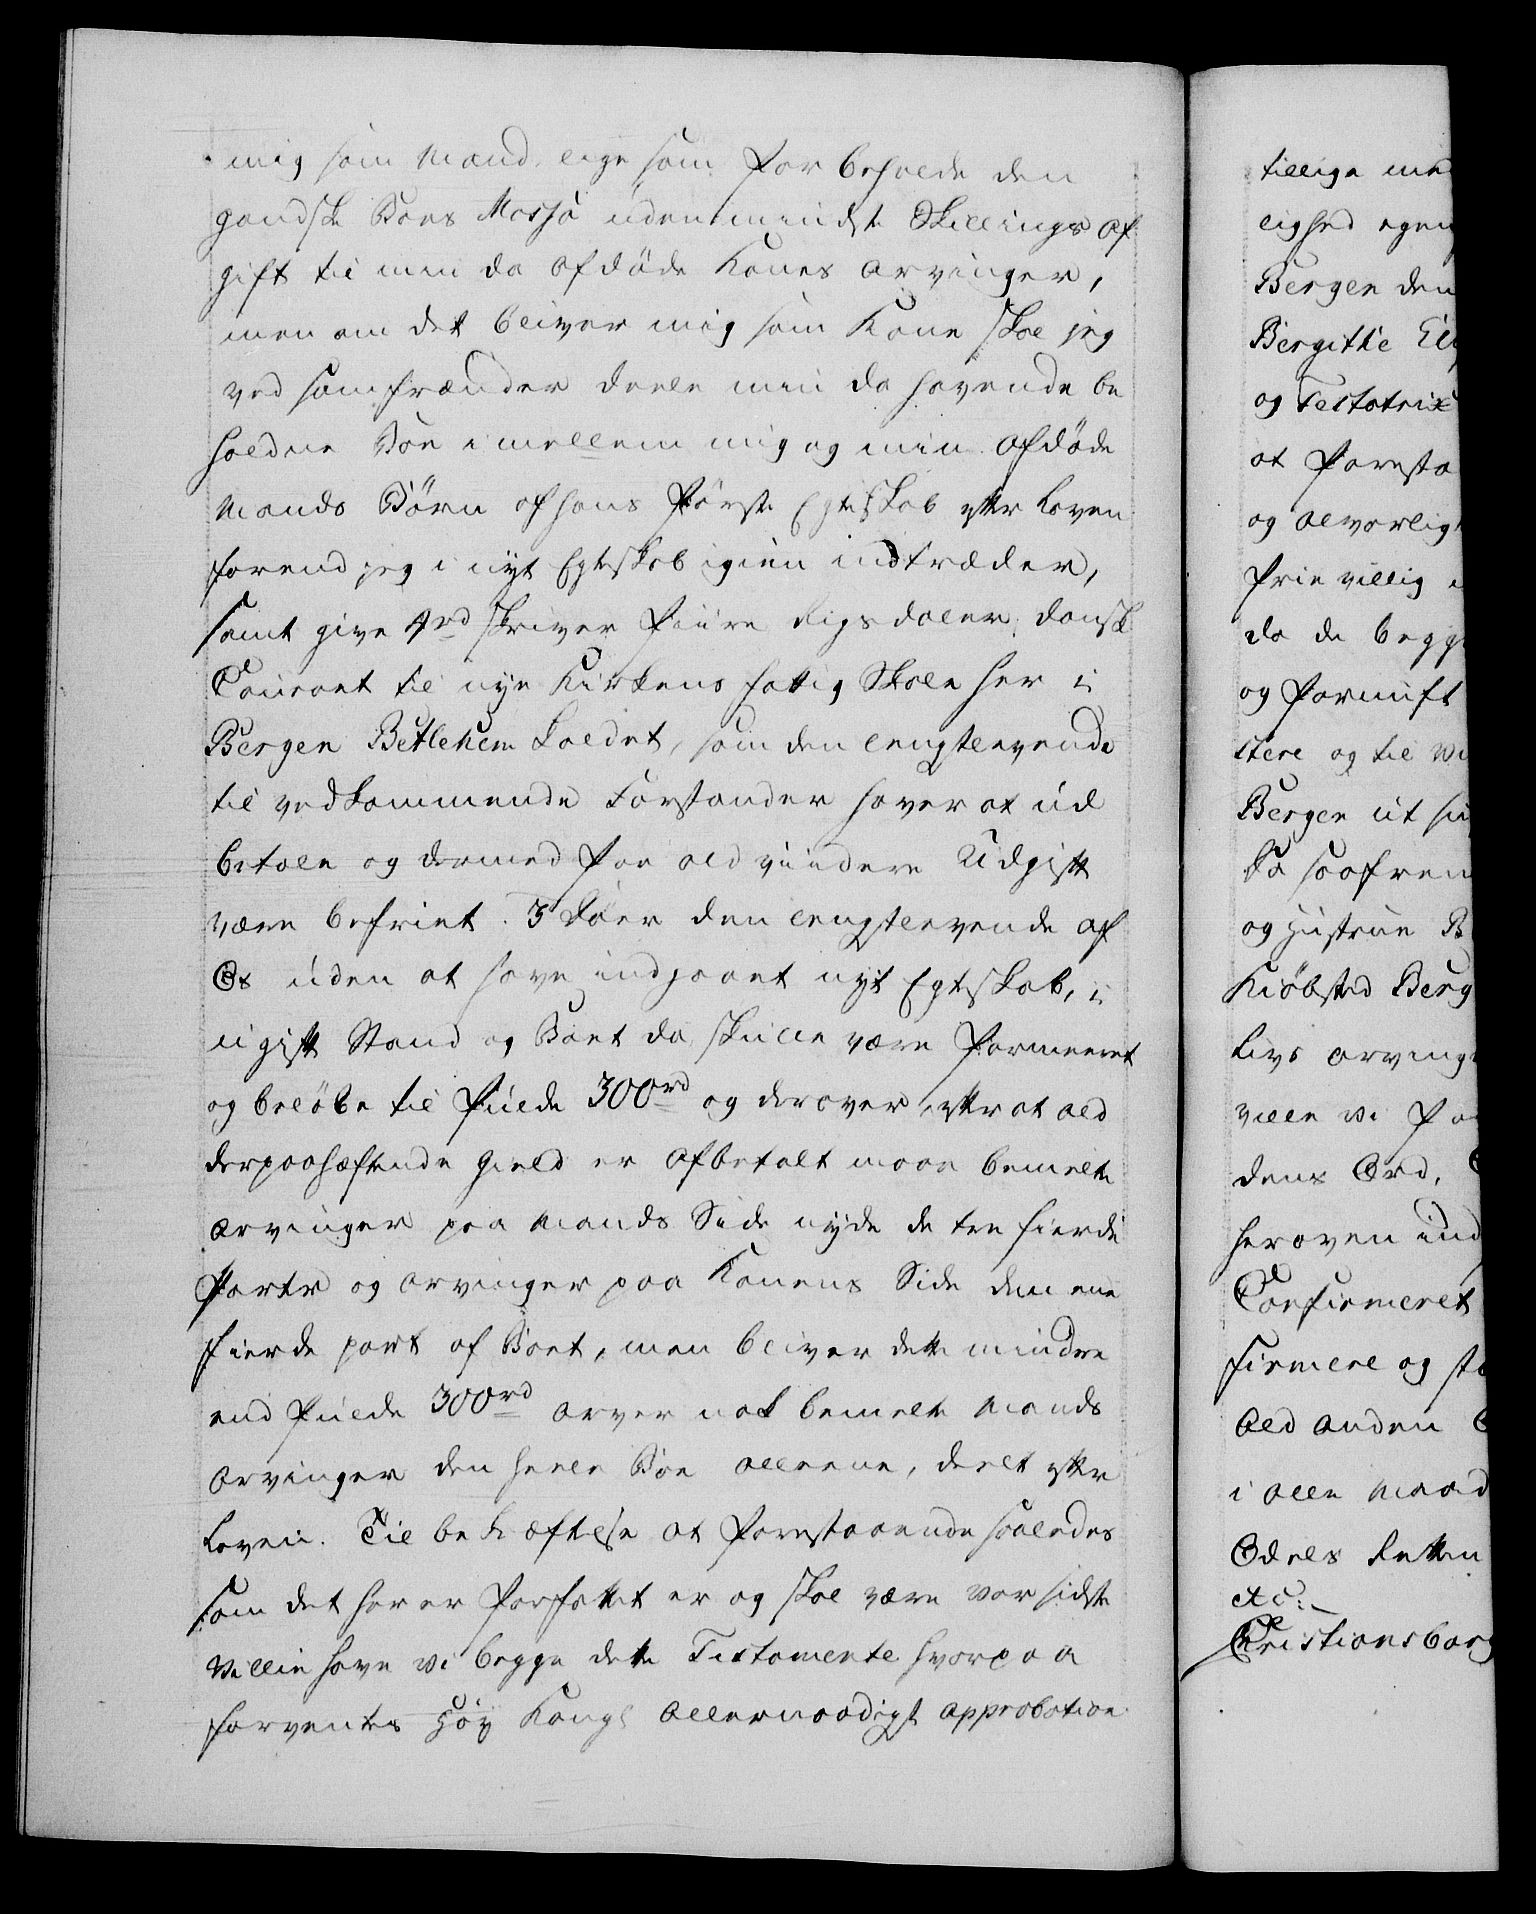 mig som Mand, lige som forbeholde den
gandske Boes Massa uden mindste Skillings af
gift til min da afdøde Kones Arvinger,
men om det bliver mig som Kone skal jeg
ved samfrænder deele min da havende be
holdne Boe imellem mig og min afdøde
Mands Børn af hans første Egteskab efter Loven
forend jeg i nyt Egteskab igien indtræder,
samt give 4rd skriver fiire Rigsdaler dansk
Courant til nye Kirkens fattig Skole her i
Bergen Betlehem kaldet, som den lengstlevende
til vedkommende Forstander haver at ud
betale og dermed for ald viidere Udgift
være befriet. 3 Døer den lengstlevende af
Os uden at have indgaaet nyt Egteskab, i
ugift Stand og Boet da skulle være formeeret
og beløbe til fulde 300rd og derover, efter at ald
derpaahæftende Gield er afbetalt maae bemelte
Arvinger paa Mands Side nyde de tre fierde
Parter og Arvinger paa Konens Side den ene
fierde part af Boet, men bliver dette mindre
end fulde 300rd arver nok bemelte Mands
Arvinger den heele Boe alleene, deelt efter
Loven. Til bekræftelse at forestaaende saaledes
som det her er forfattet er og skal være vor sidste
Villie have vi begge dette Testamente hvorpaa
forventes Høy Kongl allernaadigst approbation

tillige med
lighed egen
Bergen den
Birgithe
og Testatrix
at foresta
og alvorlig
frie villig
da de begge
og Fornuft
stere og til
Bergen ut su
Da saafrem
og Hustrue B
Kiøbsted Berg
Livs Arvinge
ville vi for
dens Ord,
heroven ind
Confirmeret
firmere og sta
Ald anden
i alle Maad
Odels Retten
etc:
Christiansborg